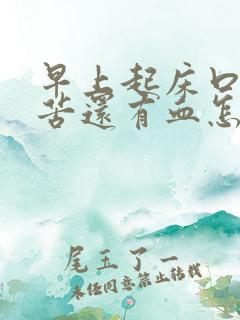 早上起床口
苦还有血怎
尾玉了一
未经同意禁止转载